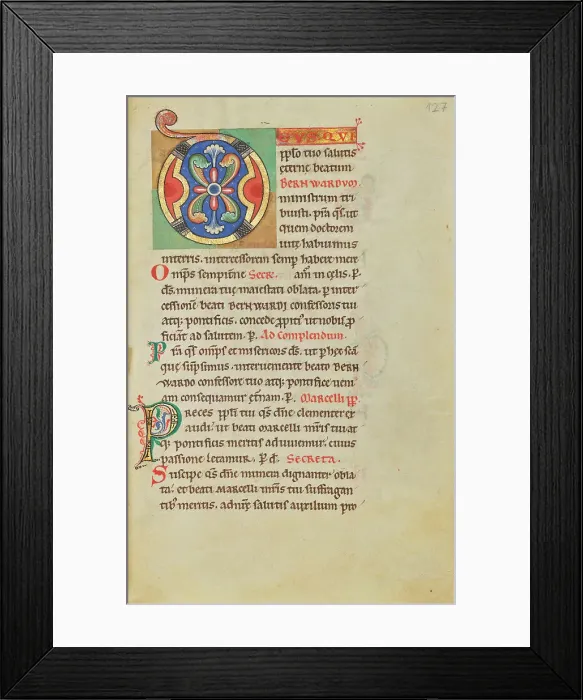 127
DS QUI
pplo tuo salutis
eterne beatum
BERNWARDUM
ministrum tri
buisti. pta qs. ut
quem doctorem
uite habuimus
interris. intercessorem semp habere mere
Omps sempitne Secr. am in celis. p.
ds. munera tue maiestati oblata. p inter
cessione beati BERNWARDI confessoris tui
atq; pontificis. concede ppiti' ut nobis p
ficiant ad salutem. p. Ad Complendum.
Pta qs omps et misericors ds. ut p hec scā
que supsimus. interueniente beato BERN
WARDO confessore tuo atq; pontifice ueni
am consequamur etnam. p. Marcelli pp.
Preces ppli tui qs dne clementer ex
audi. ut beati Marcelli mris tui at
q; pontificis meritis adiuuemur. cuius
passione letamur. p d. Secreta.
Suscipe qs dne munera dignanter obla
ta. et beati Marcelli mris tui suffragan
tib' meritis. ad nre salutis auxilium pro